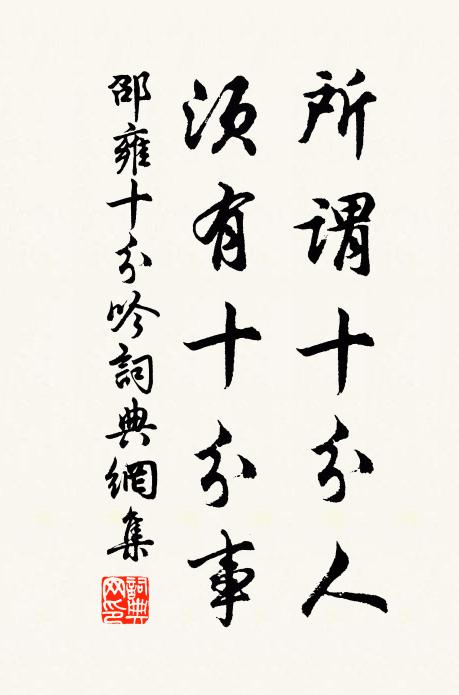 所謂十分人
須有十分事
邵雍十分吟詞典網集
詞典网印